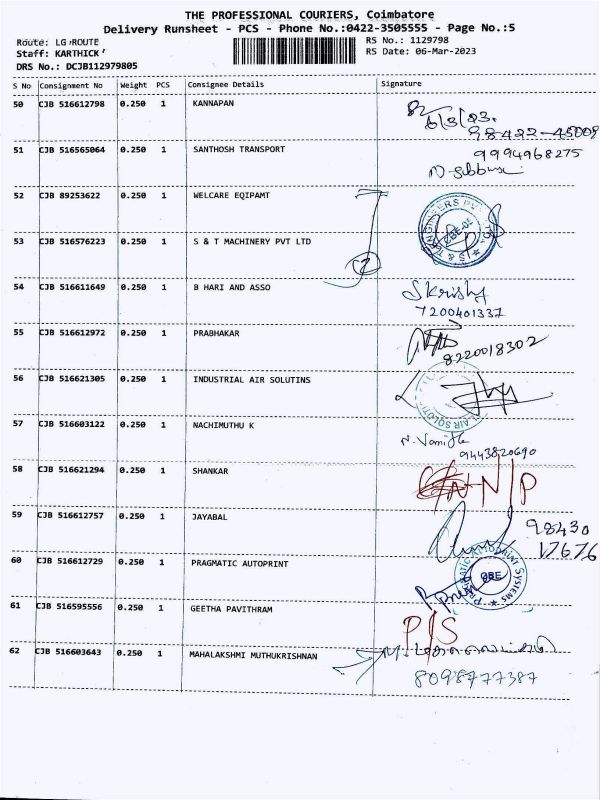 THE PROFESSIONAL COURIERS, Coimbatore
Delivery Runsheet - PCS - Phone No.:0422-3505555 - Page No.:5
Route: LG ROUTE
RS No.: 1129798
Staff: KARTHICK
RS Date: 06-Mar-2023
DRS No.: DCJB112979805
S No Consignment No Weight PCS Consignee Details Signature
50 CJB 516612798 0.250 1 KANNAPAN
6/3/23.
98422-45009
51 CJB 516565064 0.250 1 SANTHOSH TRANSPORT 9994968275
52 CJB 89253622 0.250 1 WELCARE EQIPAMT
53 CJB 516576223 0.250 1 S & T MACHINERY PVT LTD
2
54 CJB 516611649 0.250 1 B HARI AND ASSO
7200401337
55 CJB 516612972 0.250 1 PRABHAKAR
8220018302
56 CJB 516621305 0.250 1 INDUSTRIAL AIR SOLUTINS
57 CJB 516603122 0.250 1 NACHIMUTHU K
9443820690
58 CJB 516621294 0.250 1 SHANKAR N/P
59 CJB 516612757 0.250 1 JAYABAL 98430
17676
60 CJB 516612729 0.250 1 PRAGMATIC AUTOPRINT
PRAGMATIC AUTOPRINT SYSTEMS
CBE
61 CJB 516595556 0.250 1 GEETHA PAVITHRAM P/S
62 CJB 516603643 0.250 1 MAHALAKSHMI MUTHUKRISHNAN
8098777387